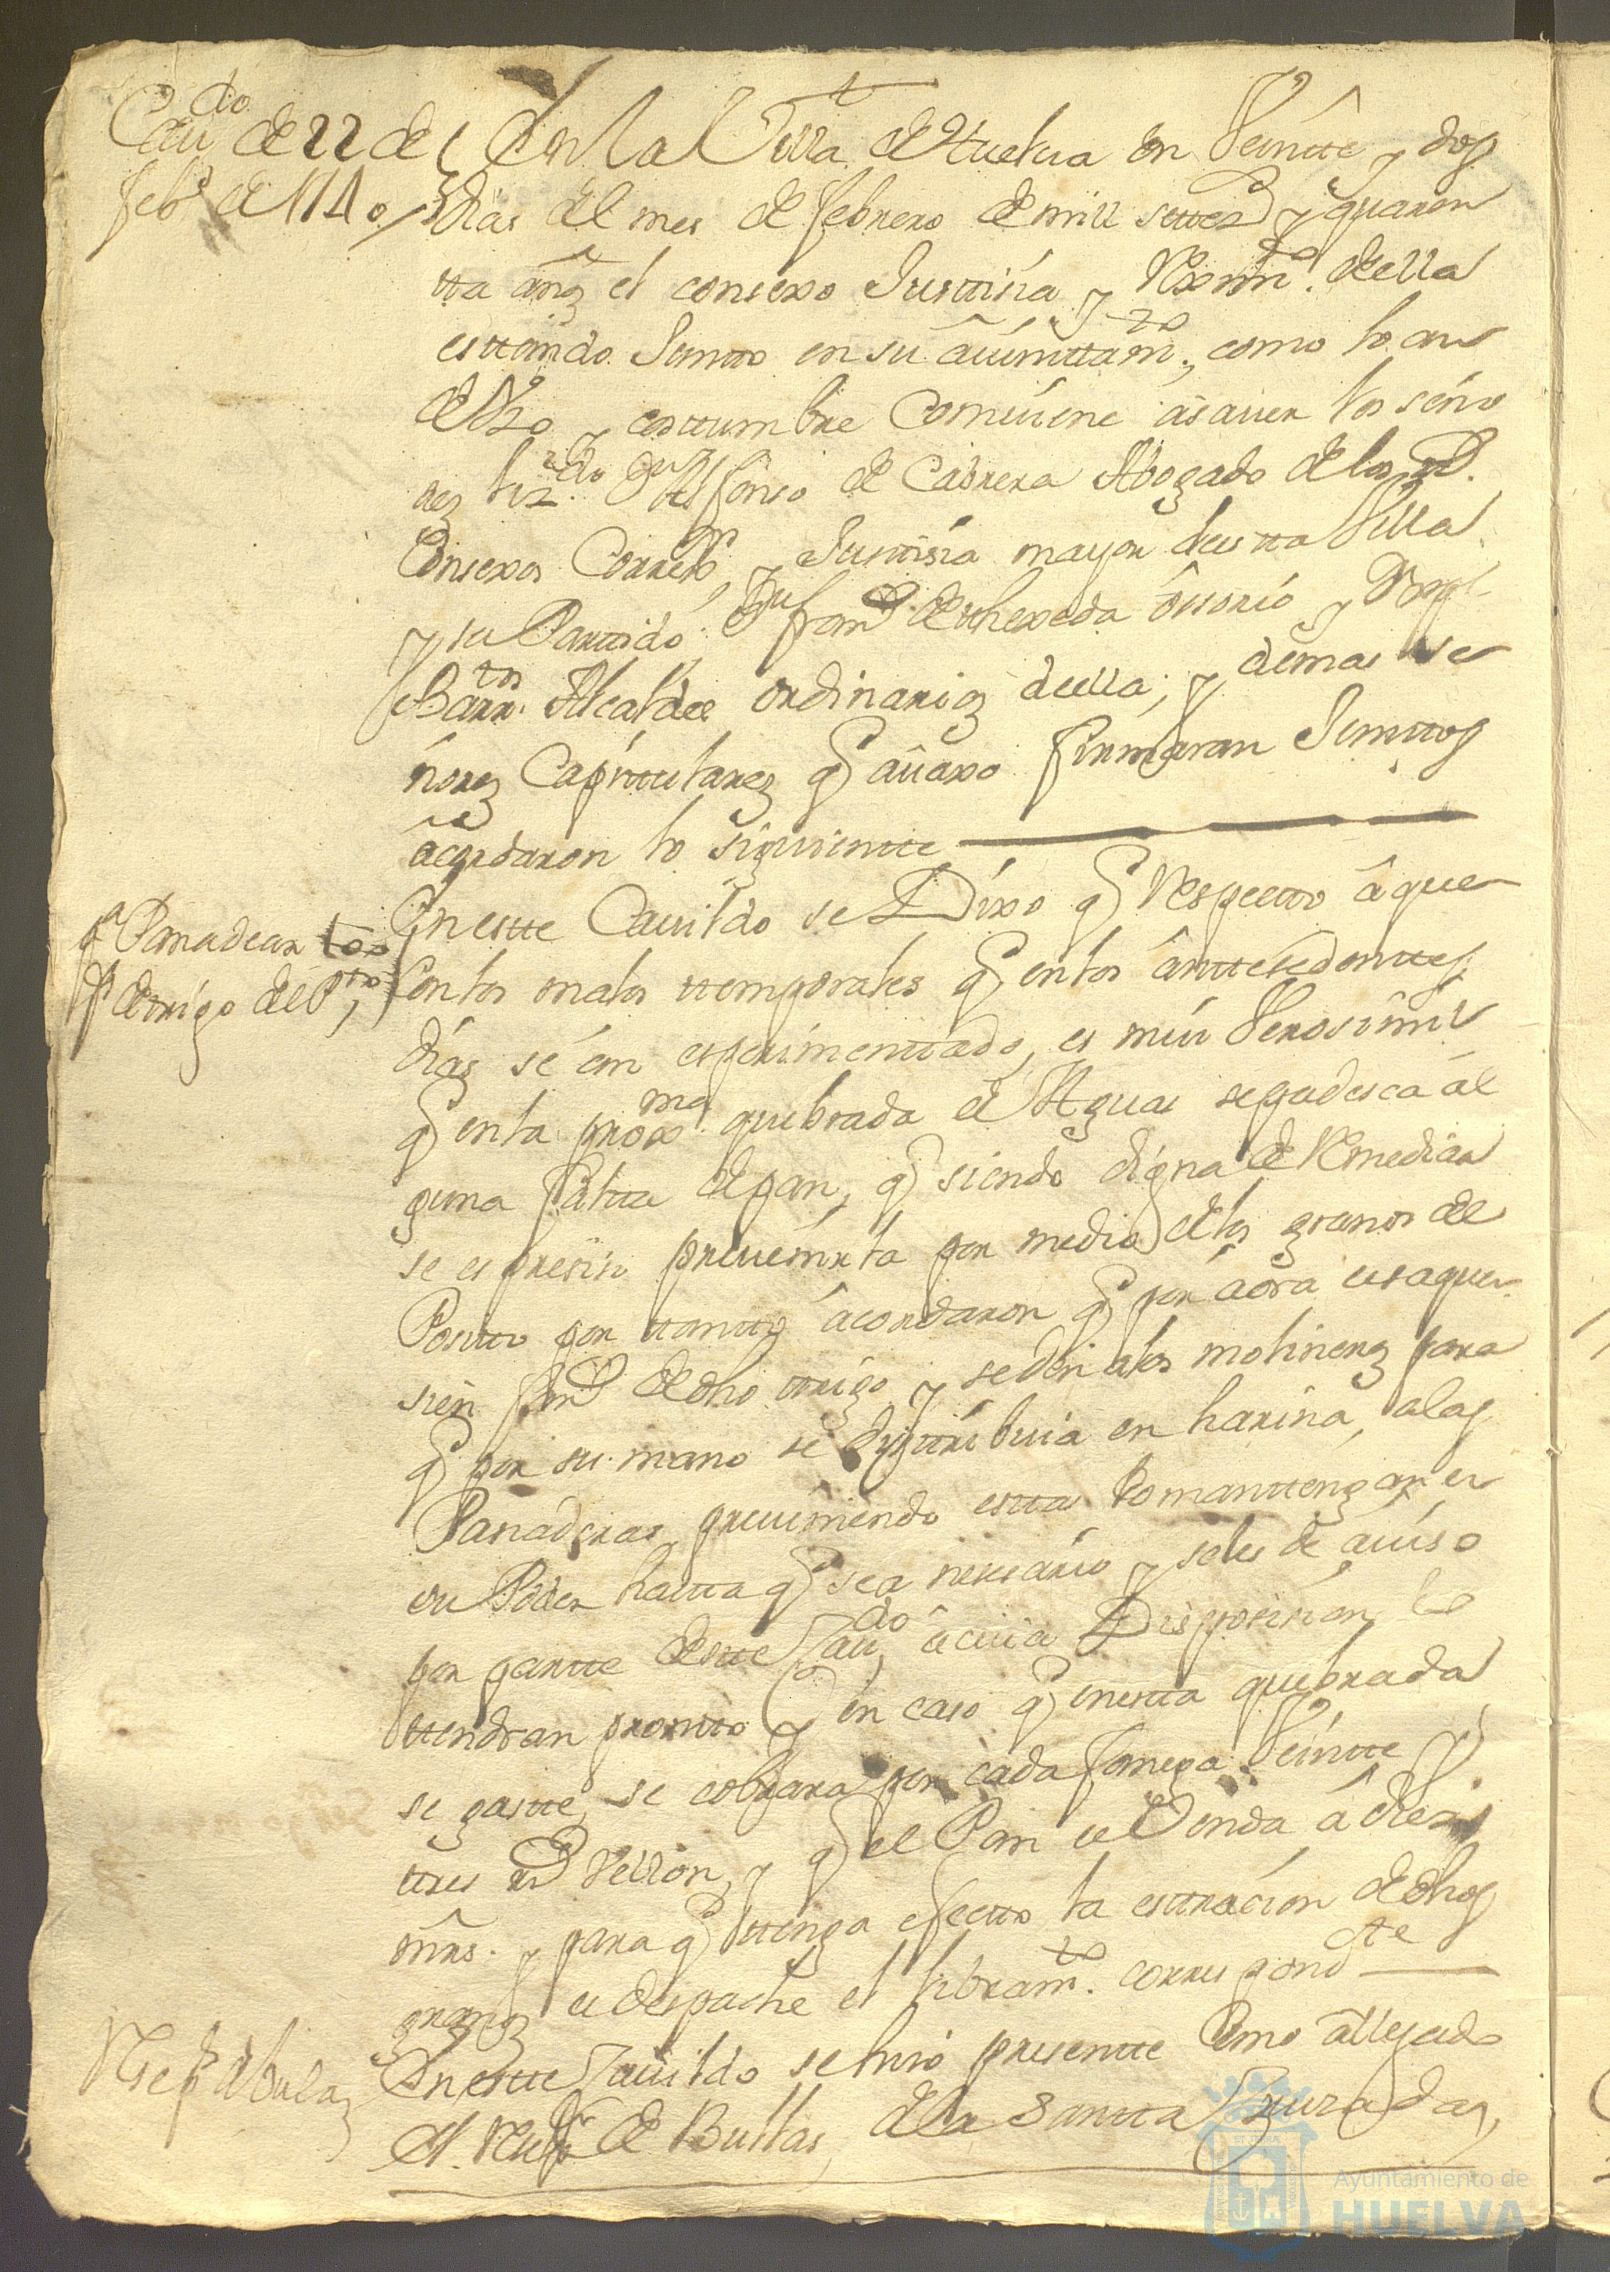 Cavdo de 22 de
febo de 1740
En la Villa de Huelva en Veintte y dos
dias del mes de febrero de mill settezs y quaren
tta añs el consexo Justtisia y Reximto. della
esttando Juntto en su aiunttamto., como lo an
de Vzo y costtumbre Combiene asaver los seño
res lizdo. Dn Ilfonso de Cabrera Abogado de los Rs.
Consexos Correxor y Justtisia mayor destta Villa
y su Parttido Dn franco de thexeda ossorio y
Barrtos. Alcaldes ordinarios della, y demas se
ñores Capittulares q avaxo firmaran Junttos
acordaron lo siguientte
qa Panadear los
ps de trigo del Ptto,
En estte Cavildo se Dixo q Respectto a que
Con los malos ttemporales q en los anttesedenttes
dias se an esperimenttado, es mui Verosimil
q en la proxma. quebrada de Aguas se padesca al
guna faltta de pan, q siendo digna de Remediar
se es presiso prevenirla por medio de los granos del
Positto por ttantto acordaron q por aora se saquen
sien fans de dho ttrigo y se den a los molineros para
q por su mano se disttribuia en harina, a las
Panaderas previniendo esttas lo manttengan en
su Poder hastta q sea nesesario y se les de aviso
por partte de estte Cavdo a cuia Disposision lo
ttendran prontto y en caso q en estta quebrada
se gastte, se cobrara por cada fanega Veintte y
ttres rs Vellon, y q el Pan se Venda a diez
mrs. y para q ttenga efectto la esttracion de dhos
granos se despache el libramto. correspondte
Rep de bulas
En estte Cavildo se hiso presentte como a llegado
el de Bullas de la Santta Cruzada,
Ayuntamiento de
HUELVA